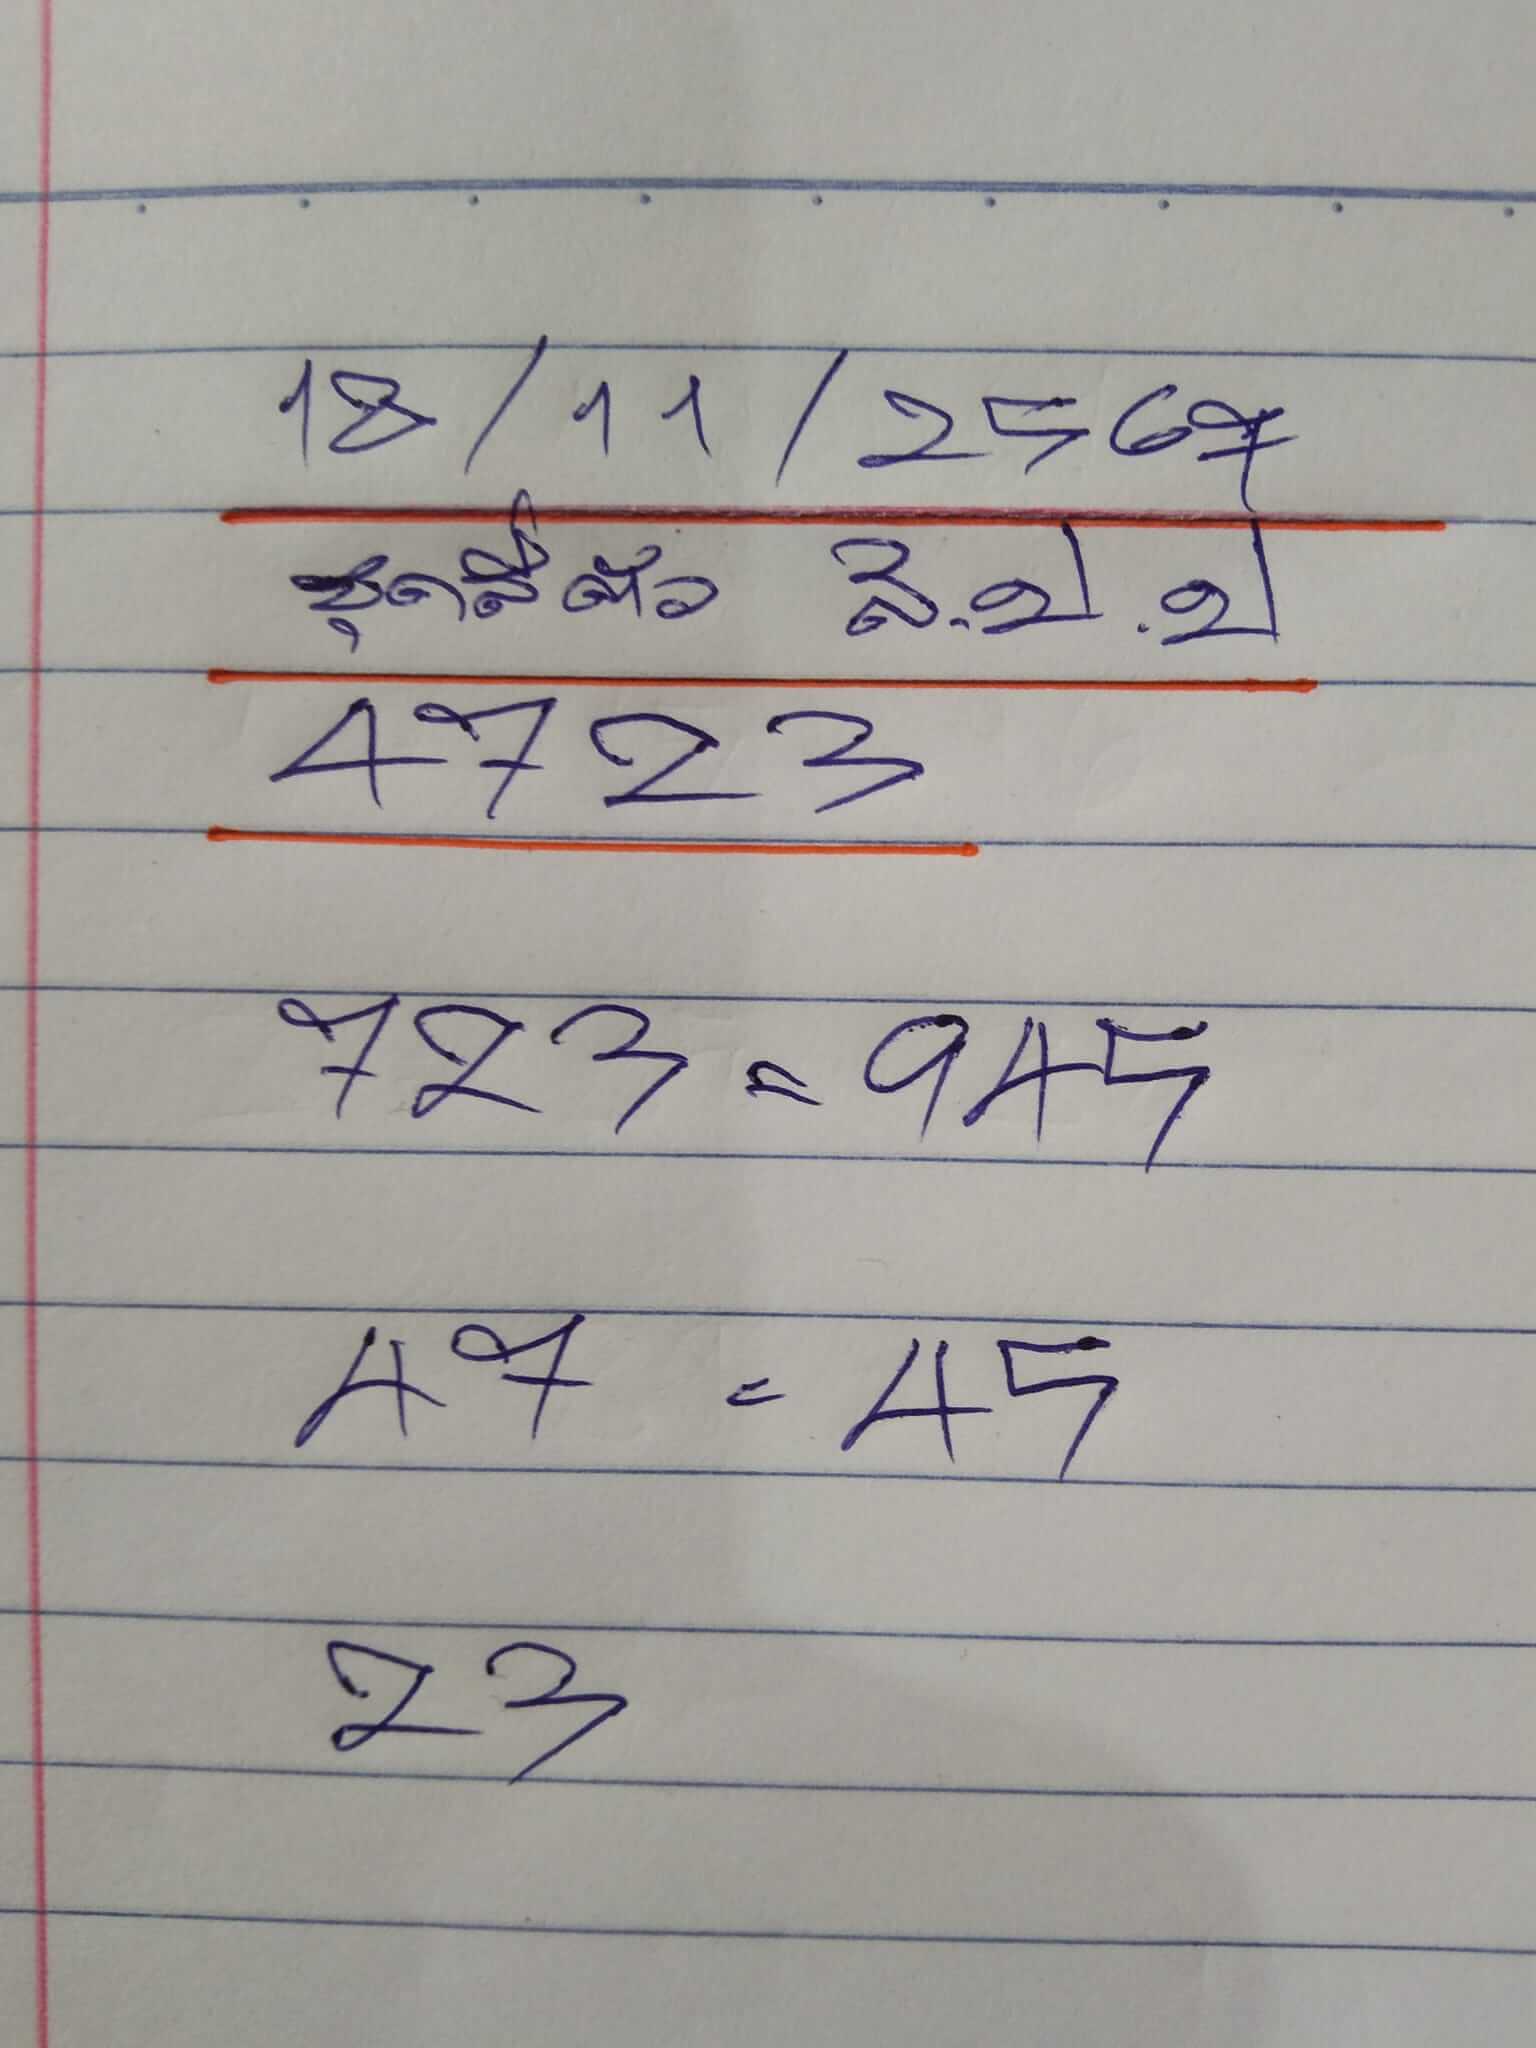 18/11/2567
ชุดสี่ตัว ส.ป.ป
4723
723 = 945
47 = 45
23